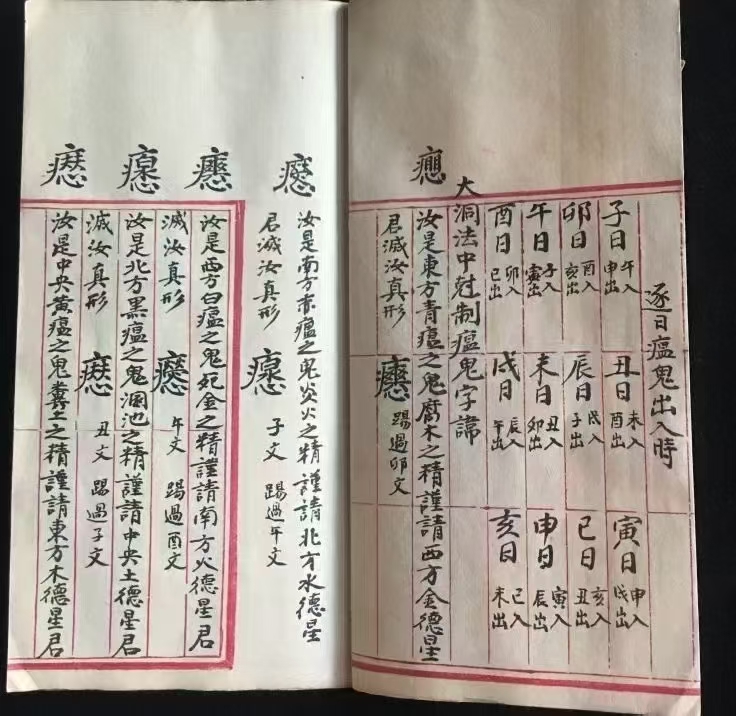 逐日瘟鬼出入時
子日 午入 申出 丑日 未入 酉出 寅日 申入 戌出
卯日 酉入 亥出 辰日 戌入 子出 巳日 亥入 丑出
午日 子入 寅出 未日 丑入 卯出 申日 寅入 辰出
酉日 卯入 巳出 戌日 辰入 午出 亥日 巳入 未出
大洞法中尅制瘟鬼字諱
汝是東方青瘟之鬼腐木之精謹請西方金德星
君滅汝真形 踢過卯文
汝是南方赤瘟之鬼炎火之精謹請北方水德星
君滅汝真形 子文 踢過午文
汝是西方白瘟之鬼金之精謹請南方火德星君
滅汝真形 午文 踢過酉文
汝是北方黑瘟之鬼溷池之精謹請中央土德星君
滅汝真形 丑文 踢過子文
汝是中央黃瘟之鬼糞土之精謹請東方木德星君